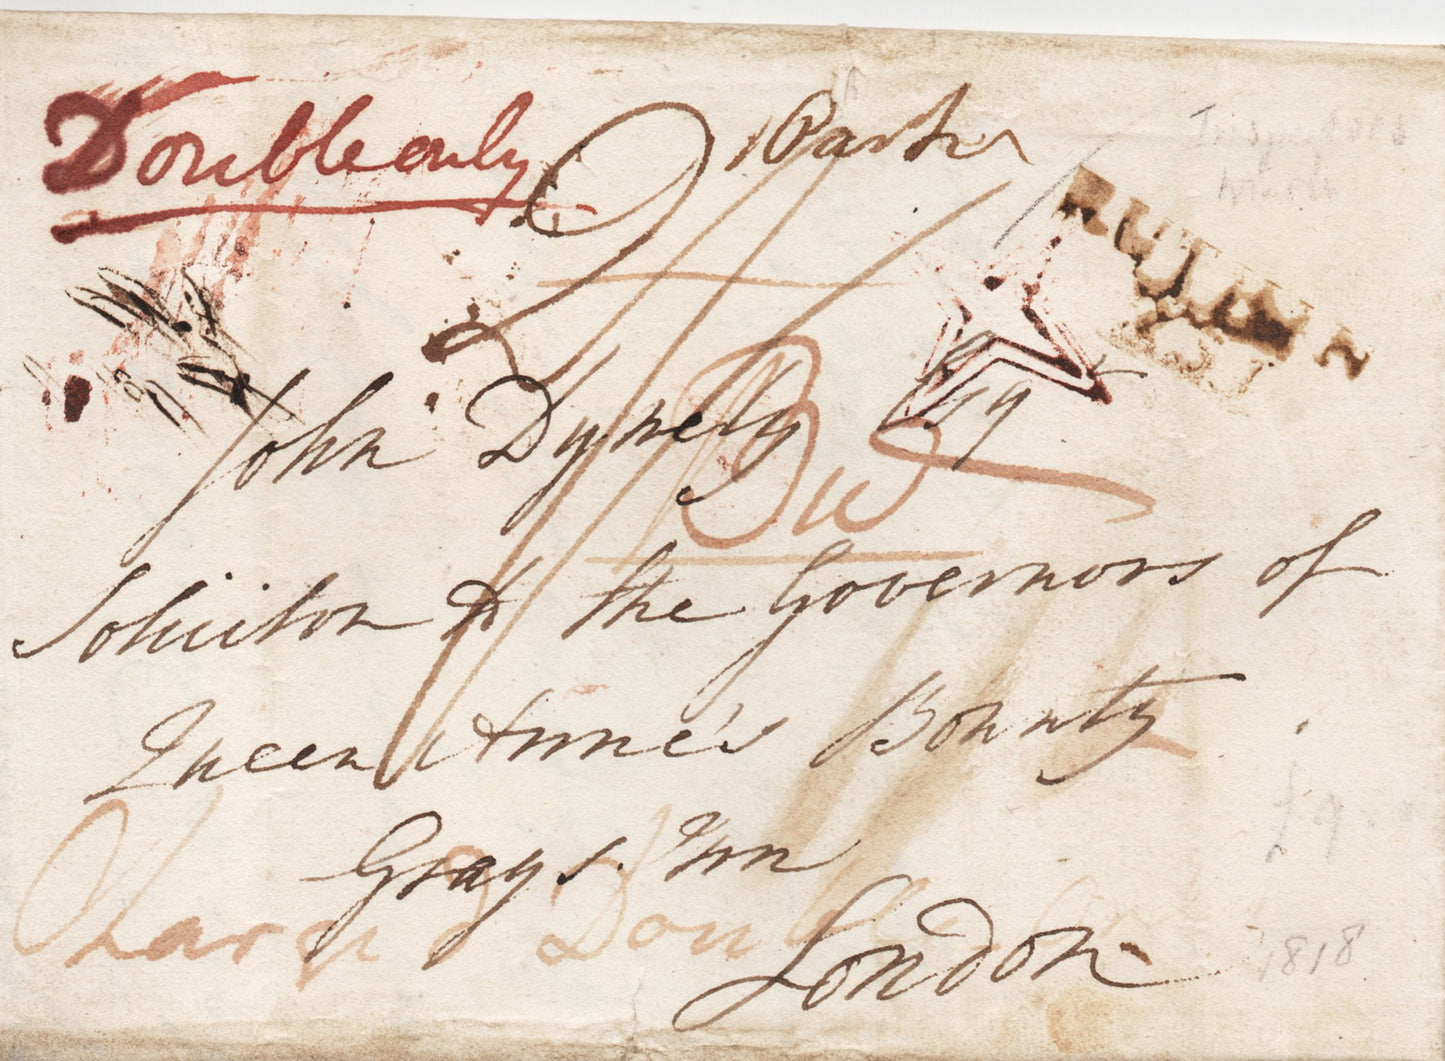 Double only
RUTHIN
John Dynely Esqr
Solicitor to the Governors of
Queen Anne's Bounty
Grays Inn
London
Charge Double
1818